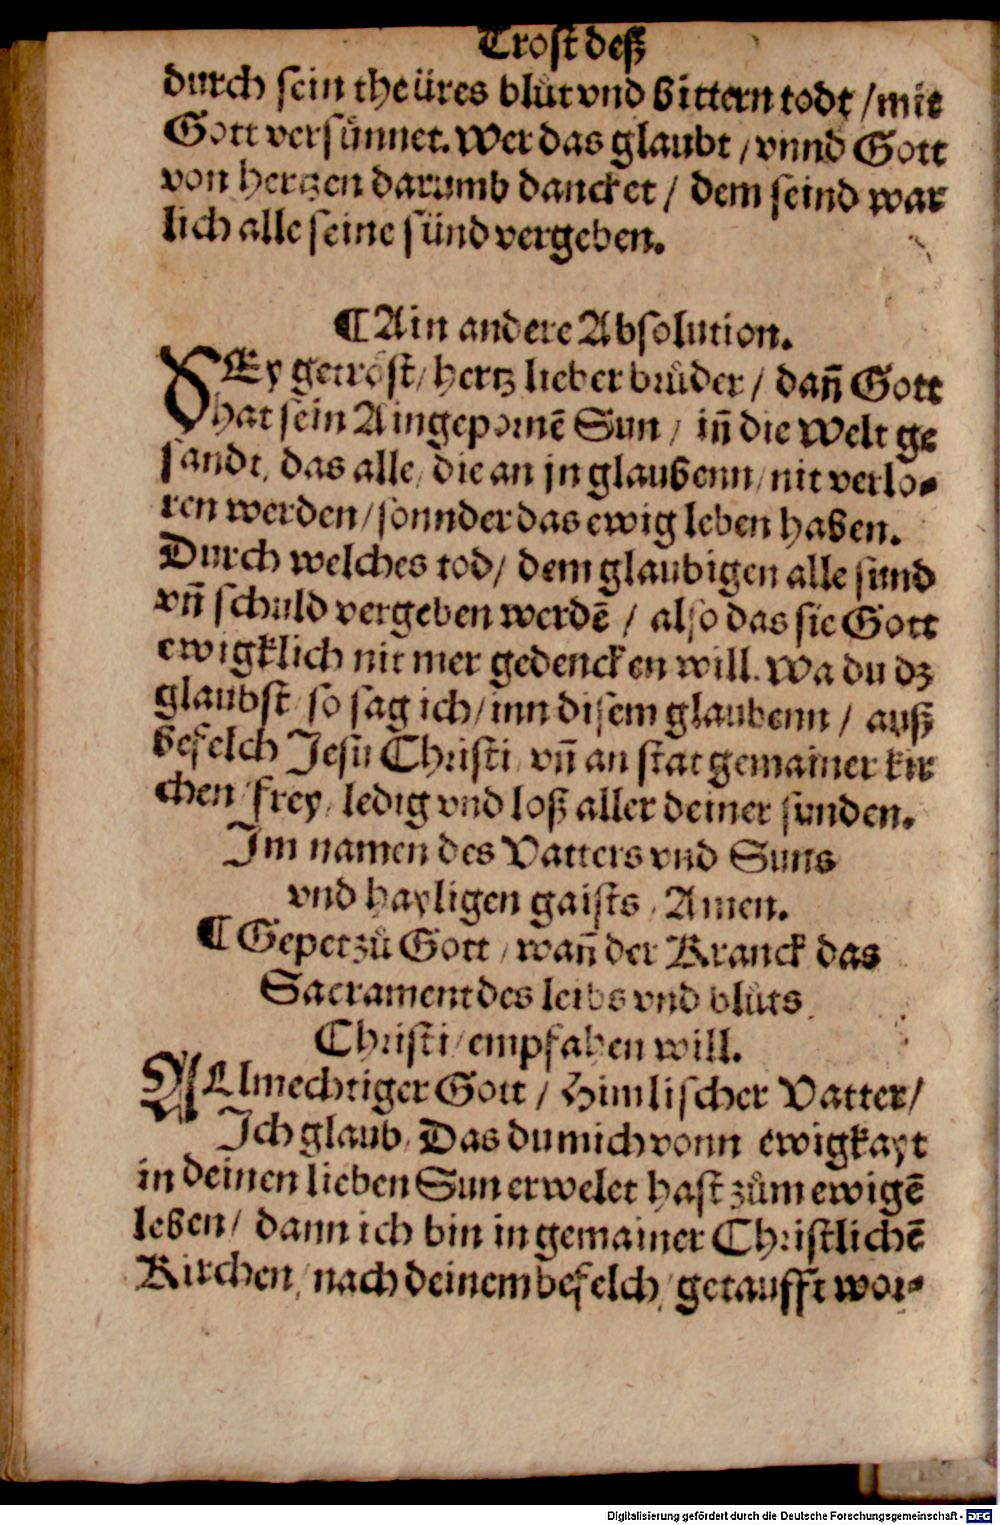 Trost deß
durch sein theüres blůt vnd bittern todt / mit
Gott versünnet. Wer das glaubt / vnnd Gott
von hertzen darumb dancket / dem seind war
lich alle seine sünd vergeben.
¶ Ain andere Absolution.
SEy getröst / hertz lieber brůder / dañ Gott
hat sein Aingepornē Sun / iñ die Welt ge
sandt / das alle / die an jn glaubenn / nit verlo⸗
ren werden / sonnder das ewig leben haben.
Durch welches tod / dem glaubigen alle sünd
vñ schuld vergeben werdē / also das sie Gott
ewigklich nit mer gedencken will. Wa du dz
glaubst / so sag ich / inn disem glaubenn / auß
befelch Jesu Christi / vñ an stat gemainer kir
chen / frey / ledig vnd loß aller deiner sünden.
Im namen des Vatters vnd Suns
vnd hayligen gaists / Amen.
¶ Gepet zů Gott / wañ der Kranck das
Sacrament des leibs vnd blůts
Christi / empfahen will.
ALmechtiger Gott / Himlischer Vatter /
Ich glaub / Das du mich vonn ewigkayt
in deinen lieben Sun erwelet hast zům ewigē
leben / dann ich bin in gemainer Christlichē
Kirchen / nach deinem befelch / getaufft wor⸗
Digitalisierung gefördert durch die Deutsche Forschungsgemeinschaft - DFG